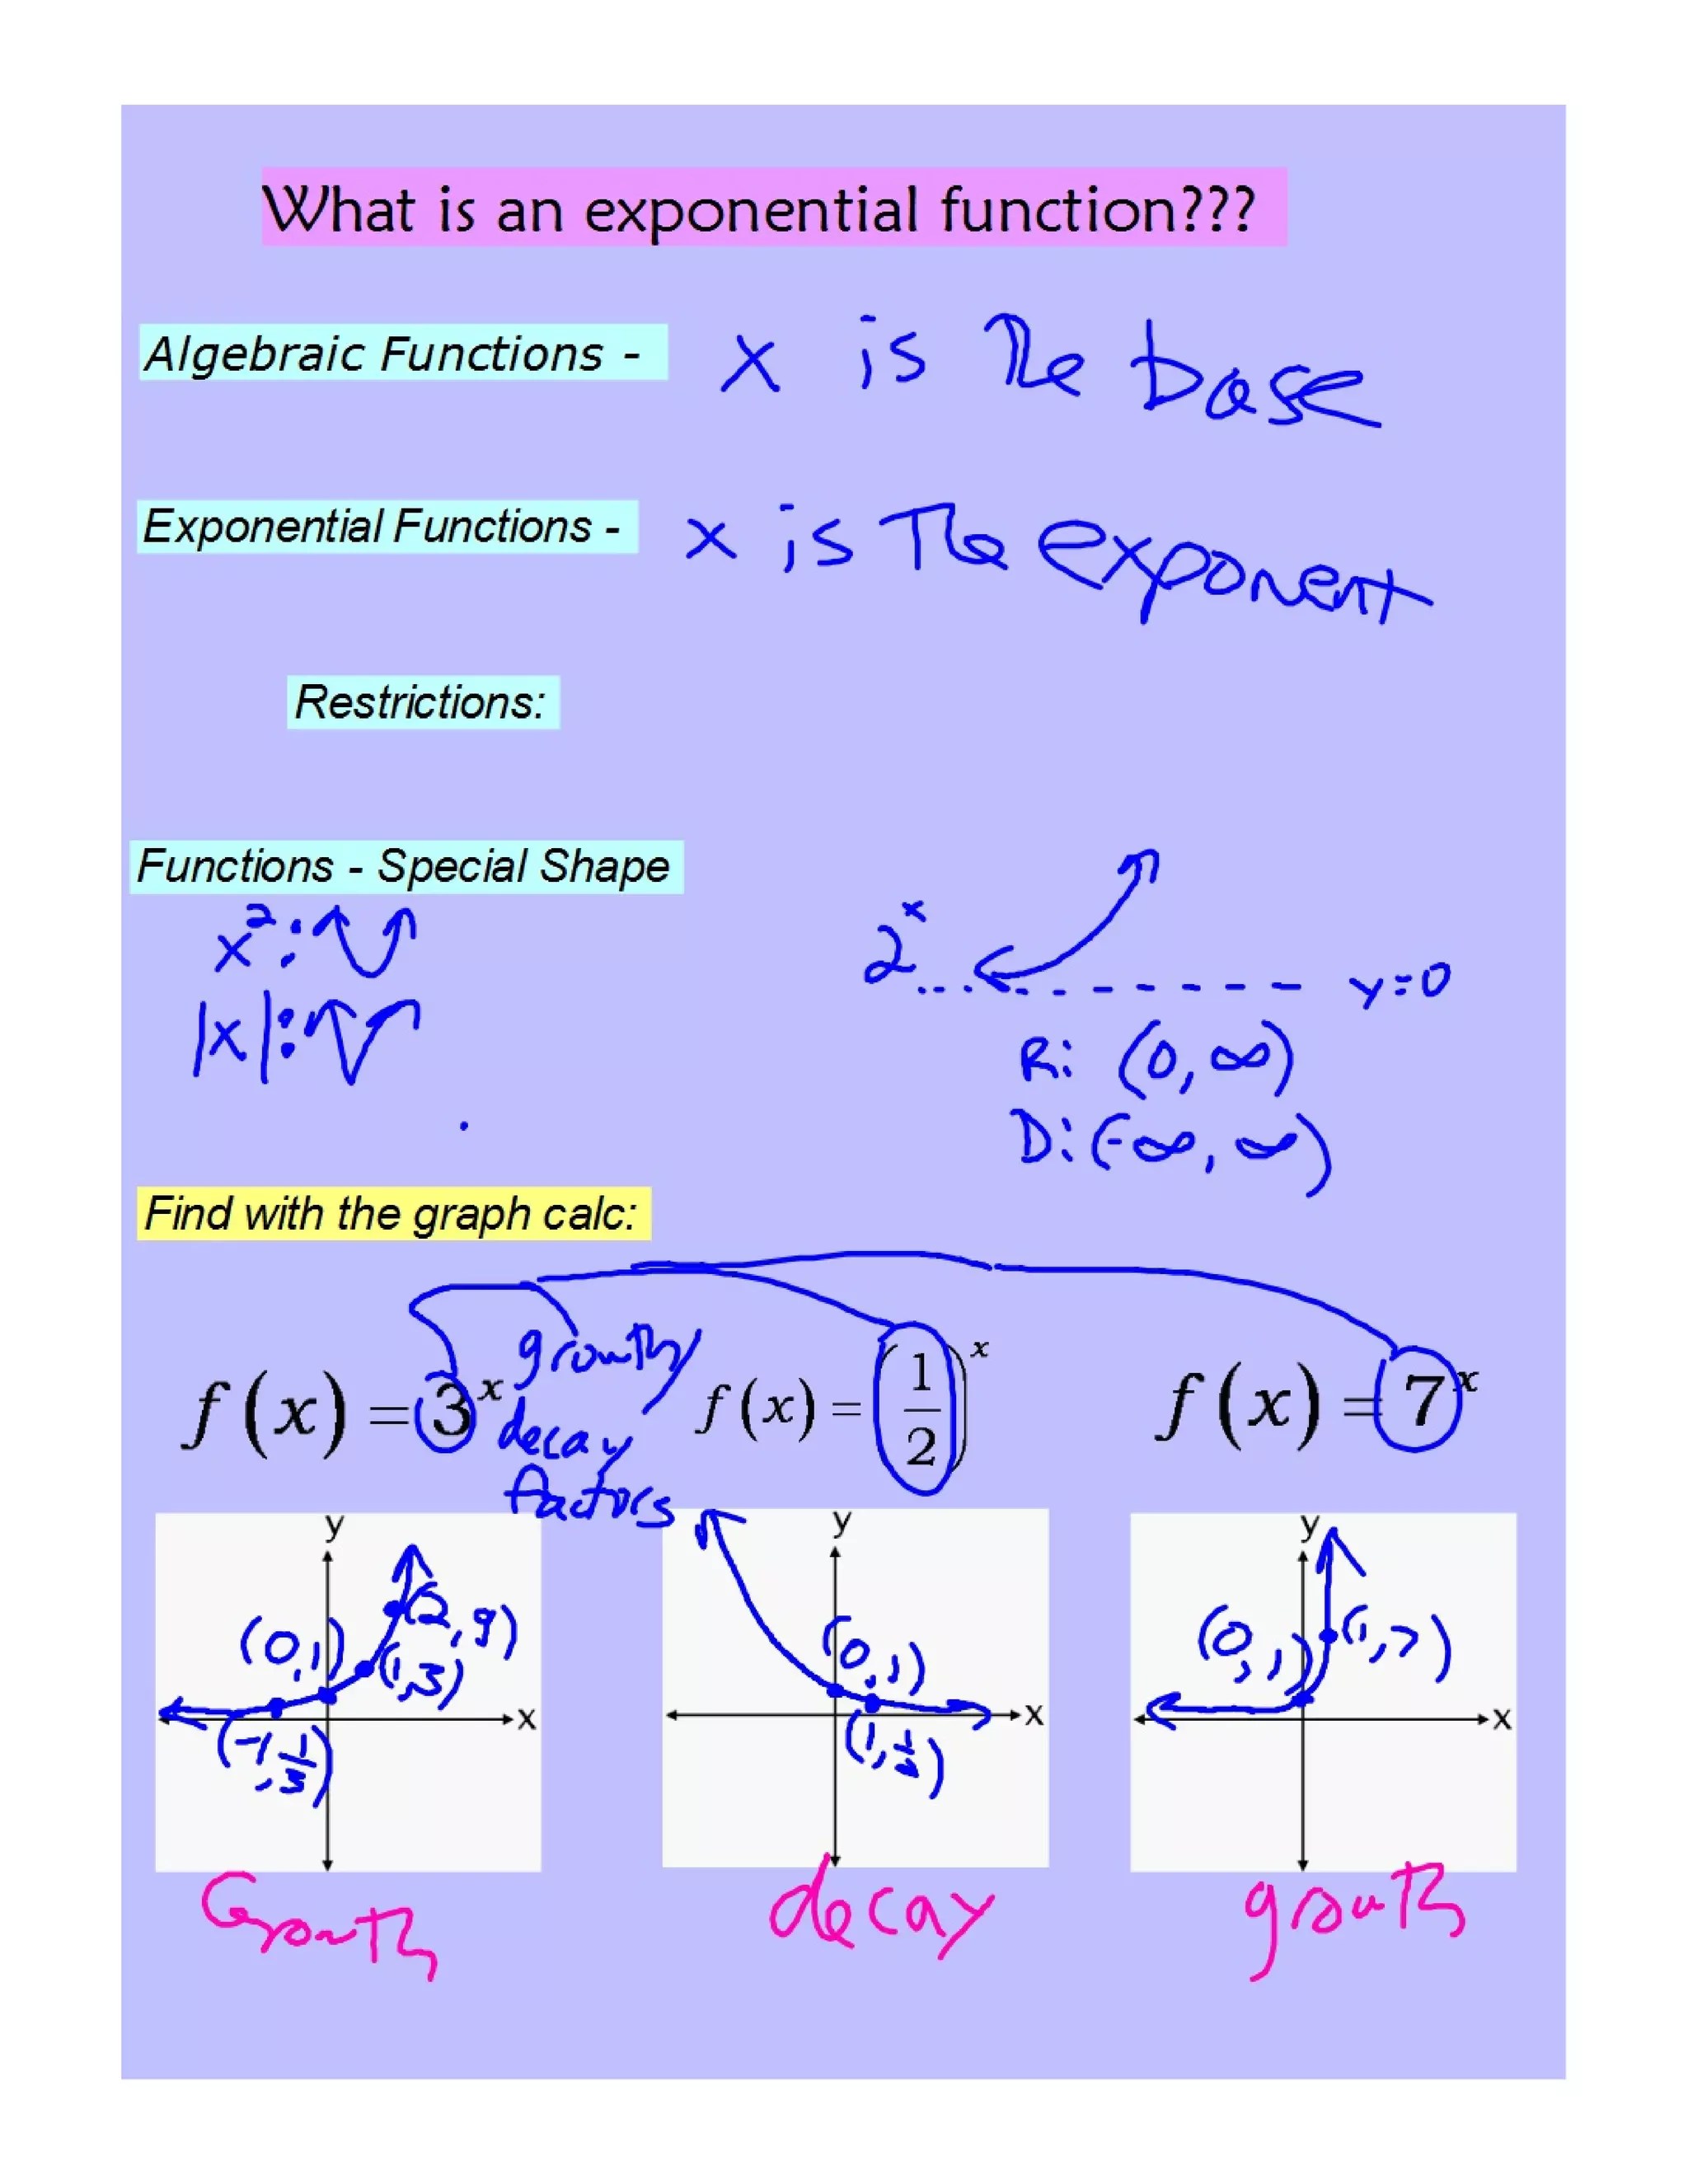 What is an exponential function???
Algebraic Functions - x is the base
Exponential Functions - x is the exponent
Restrictions:
Functions - Special Shape
x²:
|x|:
2ˣ
y=0
R: (0, ∞)
D: (-∞, ∞)
Find with the graph calc:
f(x) = 3ˣ
growth/
decay
factors
f(x) = (1/2)ˣ
f(x) = 7ˣ
y
x
(0,1)
(2,9)
(1,3)
(-1,1/3)
y
x
(0,1)
(1,1/2)
y
x
(0,1)
(1,7)
Growth
decay
growth